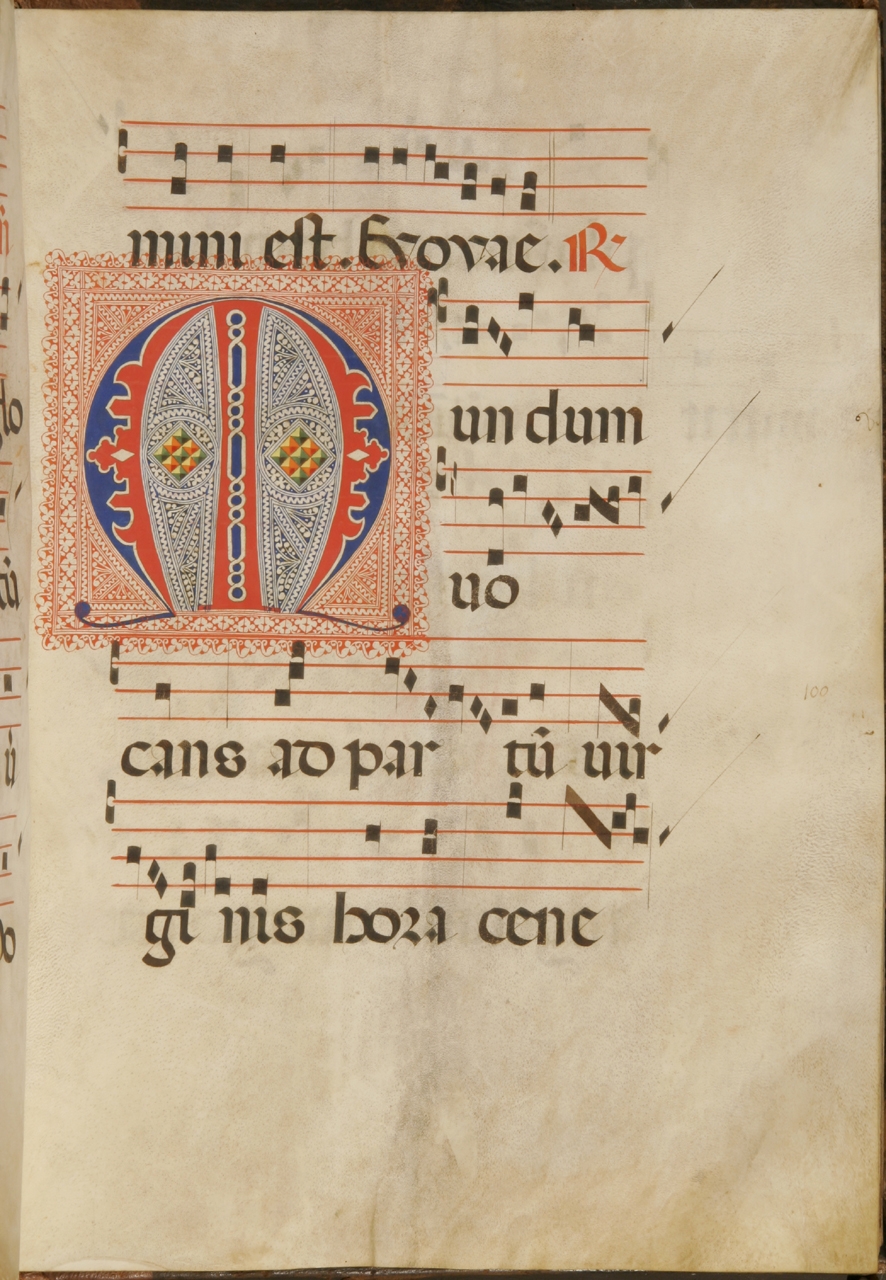 mini est. Evovae. R
Mundum
uo
cans ad par tū uir
gi nis hora cene
100